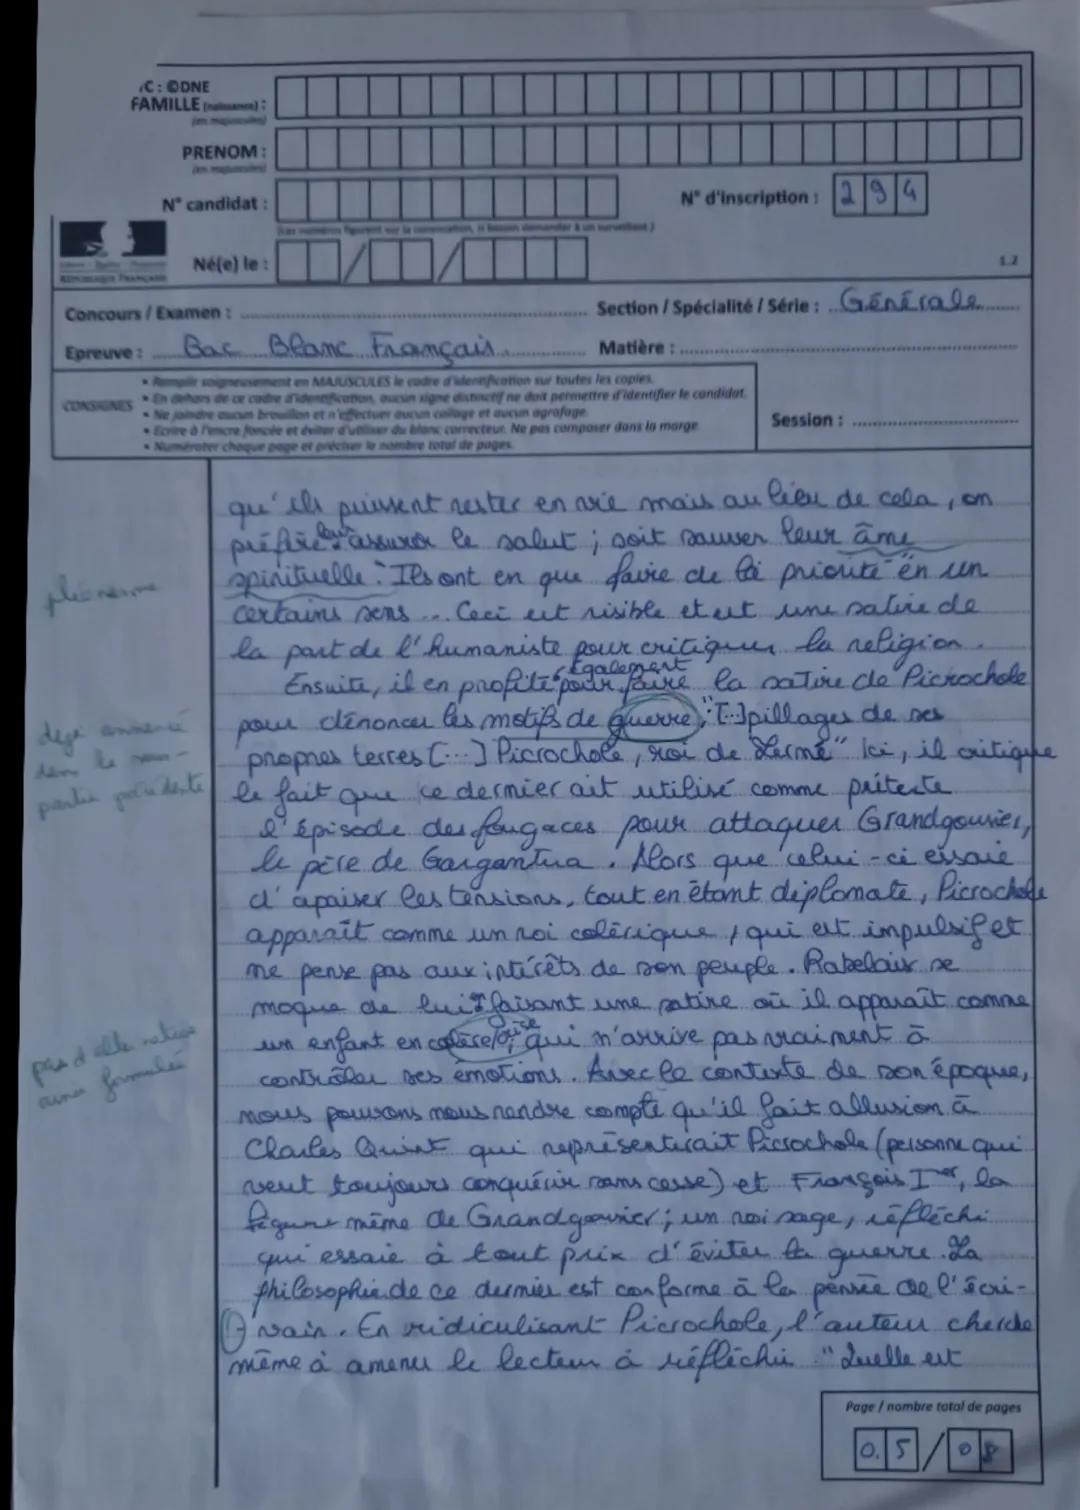 C : ©DNE
FAMILLE (naissance) :
(en majuscules)
PRENOM :
(en majuscules)
N° candidat :
N° d'inscription : 294
(Les numéros figurent sur la convocation, si besoin demander à un surveillant)
Né(e) le : / /
RÉPUBLIQUE FRANÇAISE
1.2
Concours / Examen :
Section / Spécialité / Série : Générale
Epreuve : Bac Blanc Français
Matière :
CONSIGNES
• Remplir soigneusement en MAJUSCULES le cadre d'identification sur toutes les copies.
• En dehors de ce cadre d'identification, aucun signe distinctif ne doit permettre d'identifier le candidat.
• Ne joindre aucun brouillon et n'effectuer aucun collage et aucun agrafage.
• Ecrire à l'encre foncée et éviter d'utiliser du blanc correcteur. Ne pas composer dans la marge
• Numéroter chaque page et préciser le nombre total de pages.
Session :
qu'ils puissent rester en vie mais au lieu de cela, on
préfère leur assurer le salut ; soit sauver leur âme
spirituelle. Ils ont en que faire de la priorité en un
pléonasme
certains sens ... Ceci est risible et est une satire de
la part de l'humaniste pour critiquer la religion.
Ensuite, il en profite également pour faire la satire de Picrochole
pour dénoncer les motifs de guerre, "[..] pillages de ses
déjà annoncé
dans le sous-
partie précédente
propres terres [...] Picrochole, roi de Lerné" Ici, il critique
le fait que ce dernier ait utilisé comme prétexte
l'épisode des fougaces pour attaquer Grandgousier,
le père de Gargantua. Alors que celui-ci essaie
d'apaiser les tensions, tout en étant diplomate, Picrochole
apparaît comme un roi colérique, qui est impulsif et
ne pense pas aux intérêts de son peuple. Rabelais se
moque de lui faisant une satire où il apparaît comme
un enfant en colère, qui n'arrive pas vraiment à
pas d'
contrôler ses émotions. Avec le contexte de son époque,
nous pouvons nous rendre compte qu'il fait allusion à
Charles Quint qui représenterait Picrochole (personne qui
veut toujours conquérir sans cesse) et François Ier, la
figure même de Grandgousier ; un roi sage, réfléchi
qui essaie à tout prix d'éviter la guerre. La
philosophie de ce dernier est conforme à la pensée de l'écri-
vain. En ridiculisant Picrochole, l'auteur cherche
même à amener le lecteur à réfléchir "Quelle est
Page / nombre total de pages
0.5 / 08